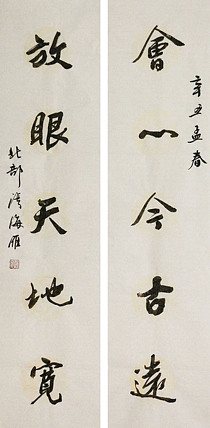 辛丑孟春
會心今古遠
放眼天地寬
北部濱海雁